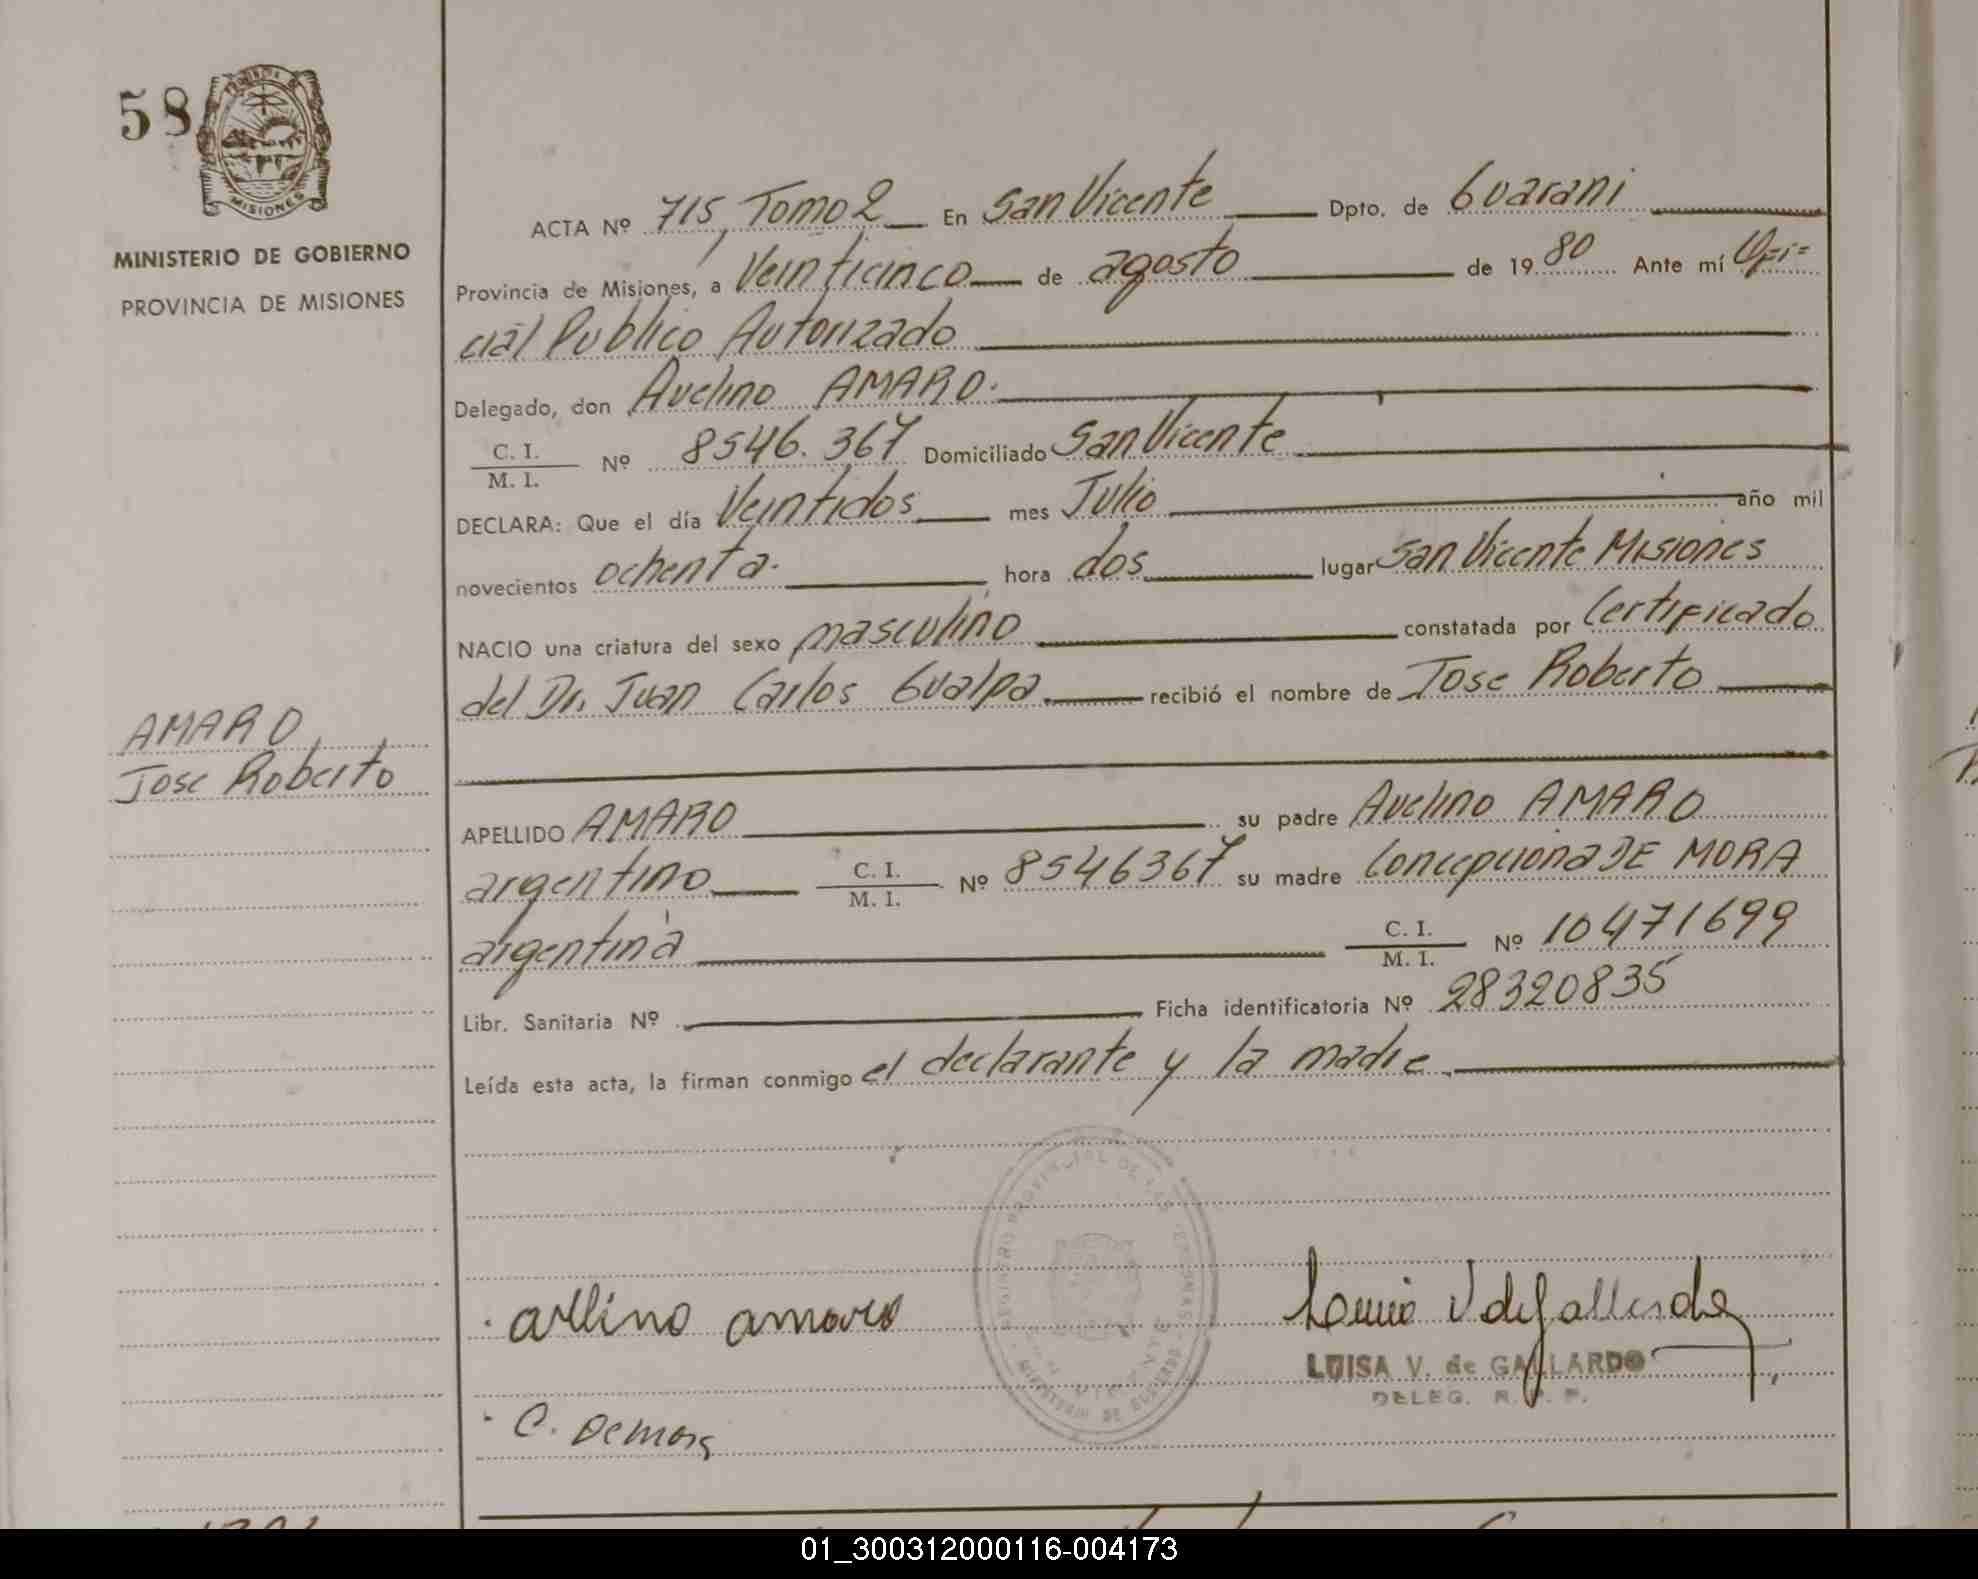 58
PROVINCIA DE
MISIONES
MINISTERIO DE GOBIERNO
PROVINCIA DE MISIONES
ACTA Nº 715, Tomo 2 En San Vicente Dpto. de Guarani
Provincia de Misiones, a Veinticinco de agosto de 1980 Ante mí Ofi=
cial Publico Autorizado
Delegado, don Avelino AMARO.
C. I.
M. I. Nº 8546.367 Domiciliado San Vicente
DECLARA: Que el día Veintidos mes Julio año mil
novecientos ochenta. hora dos lugar San Vicente Misiones
NACIO una criatura del sexo masculino constatada por Certificado
del Dr. Juan Carlos Gualpa recibió el nombre de Jose Roberto
AMARO
Jose Roberto
APELLIDO AMARO su padre Avelino AMARO
argentino C. I. M. I. Nº 8546367 su madre Concepciona DE MORA
argentina C. I. M. I. Nº 10471699
Libr. Sanitaria Nº Ficha identificatoria Nº 28320835
Leída esta acta, la firman conmigo el declarante y la madre
REGISTRO PROVINCIAL DE LAS PERSONAS
SAN VICENTE
MINISTERIO DE GOBIERNO
avelino amaro
LUISA V. de GALLARDO
DELEG. R. P. P.
C. Demora
01_300312000116-004173